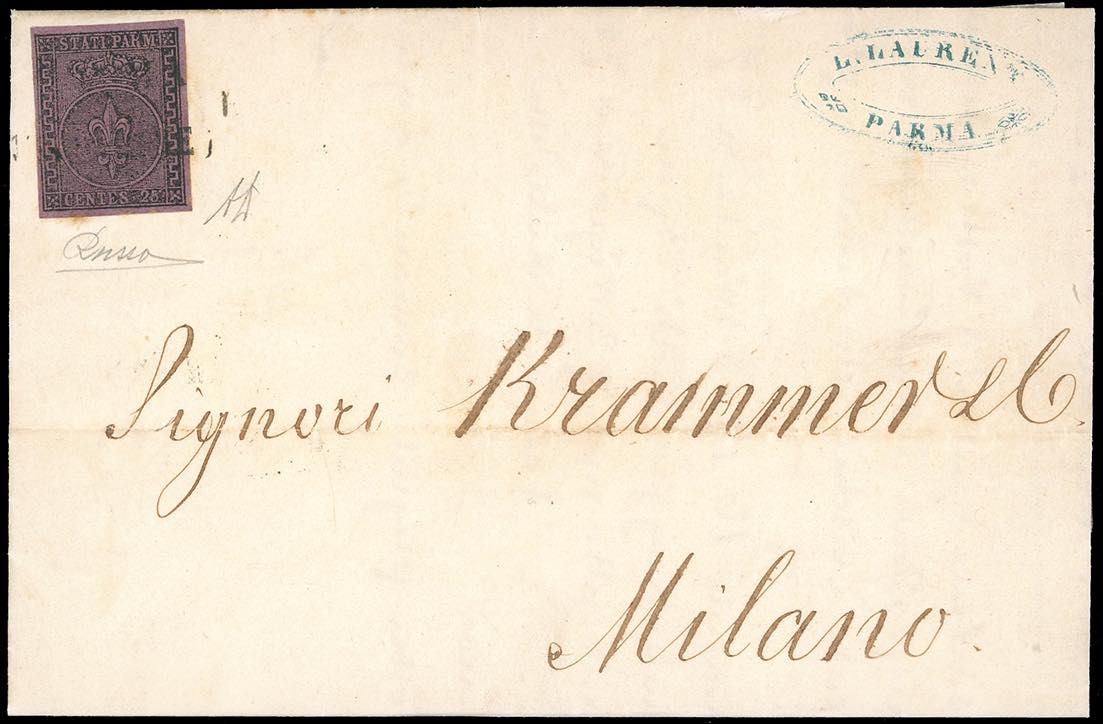 STATI PARM
CENTES. 25
L. LAUREN
PARMA
Russo
Signori Krammer & C
Milano.